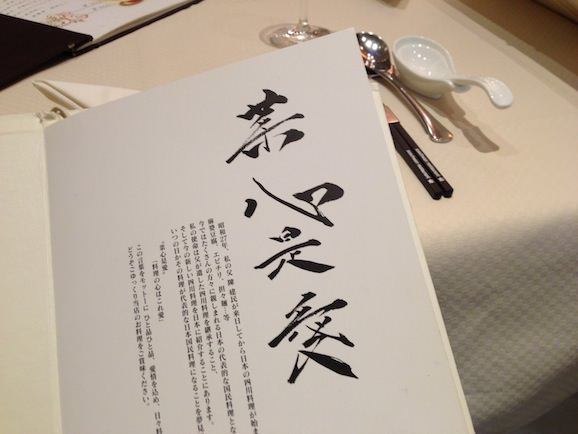 菜心是愛
昭和27年、私の父 陳 建民が来日してから日本の四川料理が始ま
麻婆豆腐、エビチリ、担々麺…等
今ではたくさんの方々に親しまれる日本の代表的な国民料理とな
私の使命は父が遺した四川料理を継承すること、
そして今の新しい四川料理を日本に紹介することにあります。
いつの日かその料理が代表的な日本国民料理になることを夢見
“菜心是愛”
「料理の心はこれ愛」
この言葉をモットーに ひと品ひと品、愛情を込め、日々料
どうぞごゆっくり当店のお料理をご賞味ください。